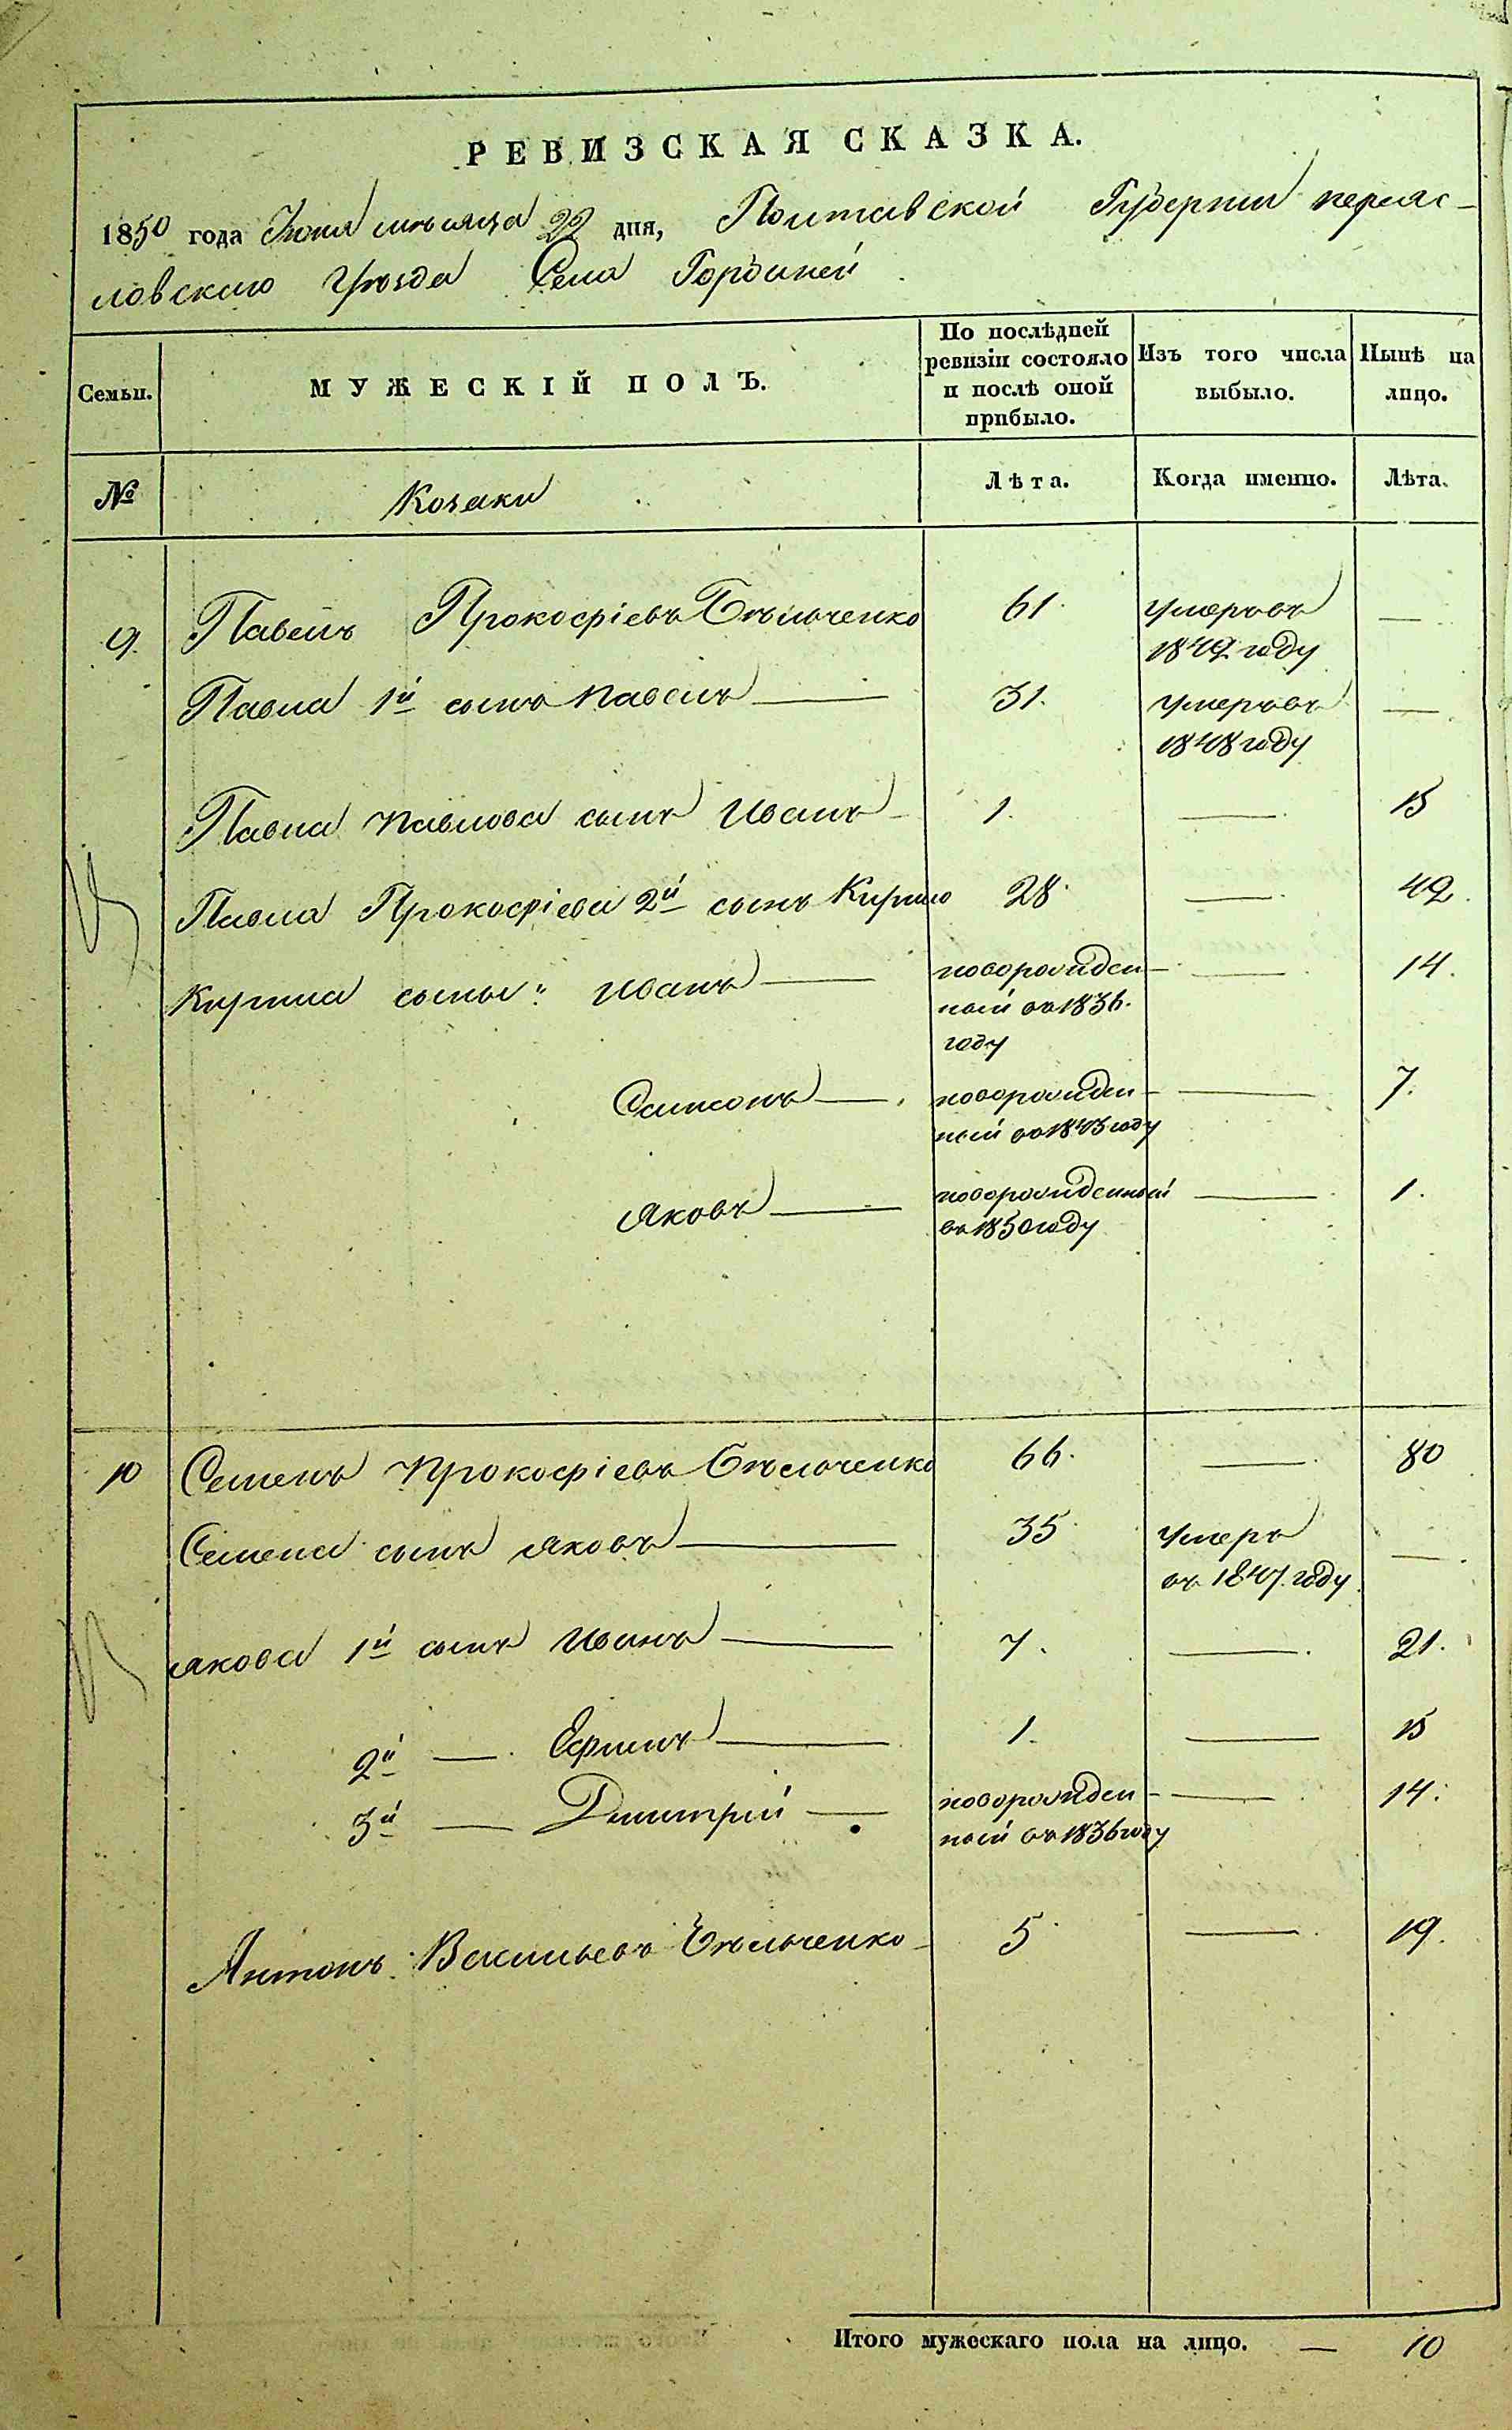 РЕВИЗСКАЯ СКАЗКА.
1850 года Іюня мѣсяца 22 дня, Полтавской Губерніи переяс-
ловскаго Уѣзда Села Гордишей
Семьи.
МУЖЕСКІЙ ПОЛЪ.
По послѣдней ревизіи состояло и послѣ оной прибыло.
Изъ того числа выбыло.
Нынѣ на лицо.
№
Козаки
Лѣта.
Когда именно.
Лѣта.
9. Павелъ Прокофіевъ Бѣльченко 61. умеръ въ —
1849 году
Павла 1й сынъ Павелъ — 31. умеръ въ —
1848 году
Павла Павлова сынъ Иванъ 1. — 15
Павла Прокофіева 2й сынъ Кирило 28. — 42.
Кирила сыны: Иванъ — новорожден- — 14.
ный въ 1836.
году
Самсонъ — новорожден- — 7.
ный въ 1843 году
Яковъ — новорожденный — 1.
въ 1850 году
10 Семенъ Прокофіевъ Бѣльченко 66. — 80
Семена сынъ Яковъ — 35 умеръ —
въ 1847. году
Якова 1й сынъ Иванъ — 7. — 21.
2й — Ефимъ — 1. — 15
3й — Дмитрій — новорожден- — 14.
ный въ 1836 году
Антонъ Васильевъ Бѣльченко 5 — 19.
Итого мужескаго пола на лицо. — 10